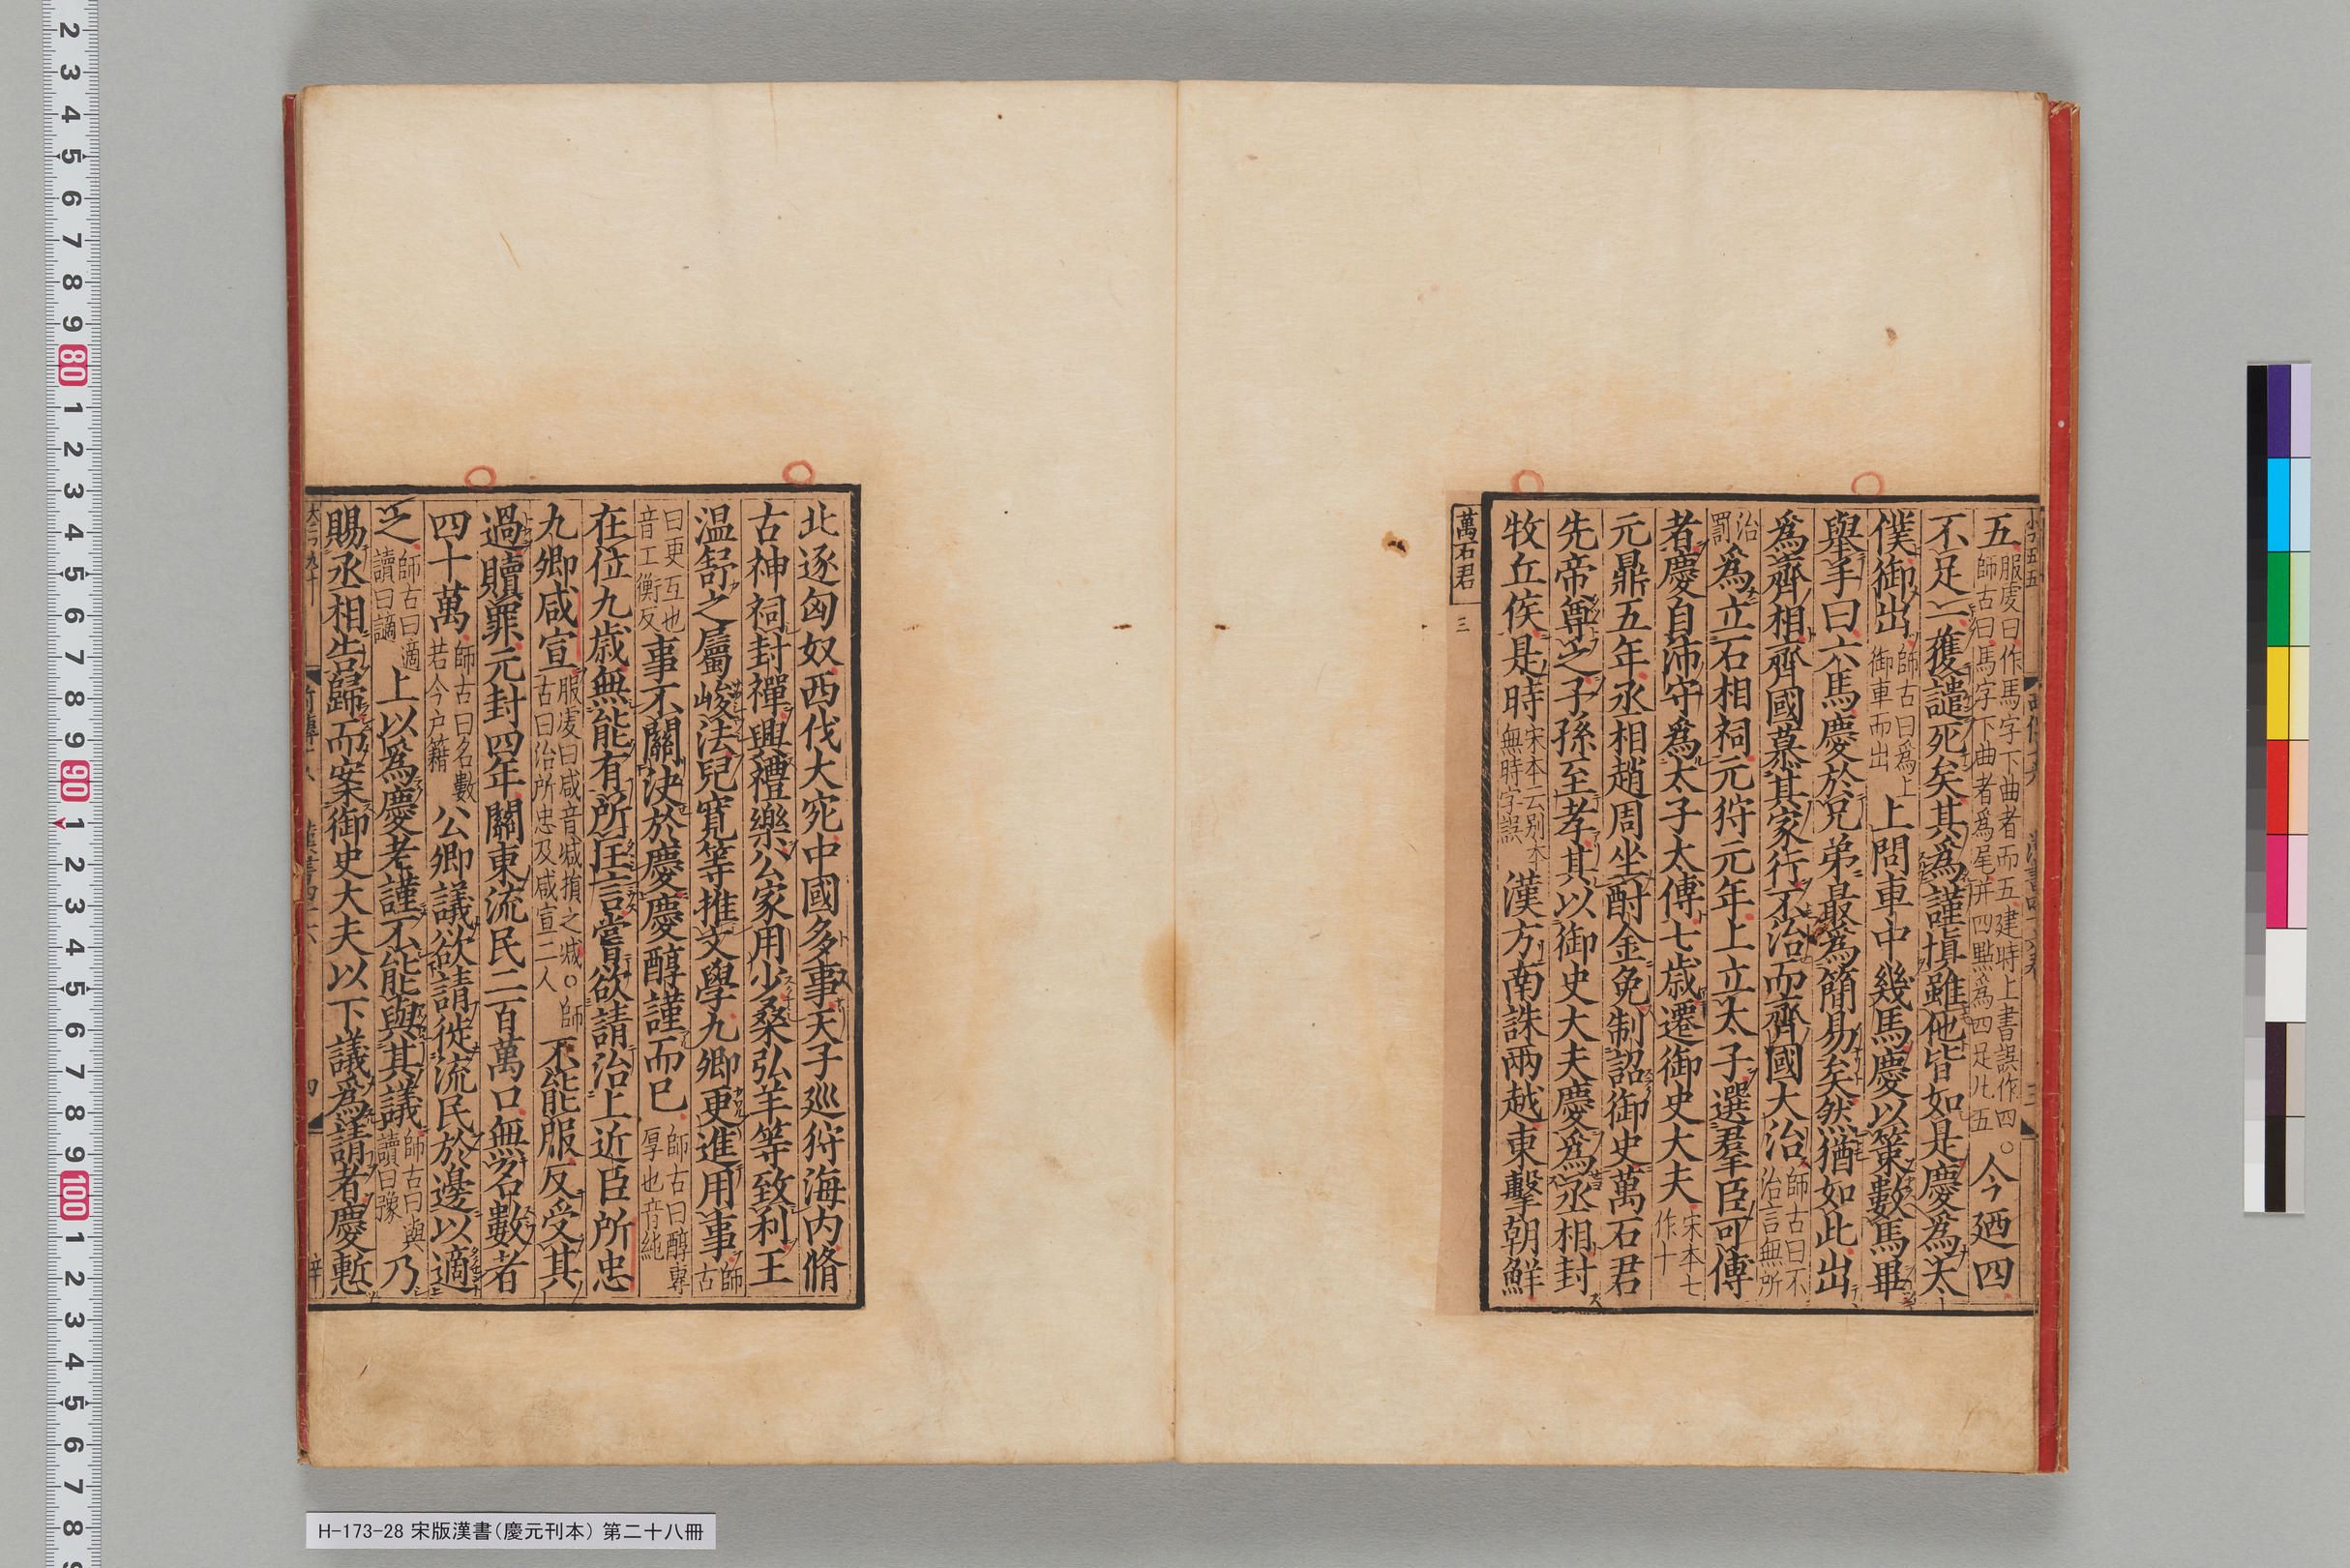 五服虔曰作馬字下曲者而五建時上書誤作四○師古曰馬字下曲者爲尾并四點爲四足凡五今廼四
不足一獲譴死矣其爲謹愼雖他皆如是慶爲太
僕御出師古曰爲上御車而出上問車中幾馬慶以策數馬畢
舉手曰六馬慶於兄弟最爲簡易矣然猶如此出
爲齊相齊國慕其家行不治而齊國大治師古曰不治言無所
治罰爲立石相祠元狩元年上立太子選羣臣可傅
者慶自沛守爲太子太傅七歲遷御史大夫宋本七作十
元鼎五年丞相趙周坐酎金免制詔御史萬石君
先帝尊之子孫至孝其以御史大夫慶爲丞相封
牧丘侯是時宋本云别本無時字誤漢方南誅兩越東擊朝鮮
萬石君 三
北逐匈奴西伐大宛中國多事天子廵狩海内脩
古神祠封禪興禮樂公家用少桑弘羊等致利王
温舒之屬峻法兒寛等推文學九卿更進用事師古
曰更互也音工衡反事不關決於慶慶醇謹而已師古曰醇專厚也音純
在位九歲無能有所匡言嘗欲請治上近臣所忠
九卿咸宣服虔曰咸音減損之減○師古曰治所忠及咸宣二人不能服反受其
過贖罪元封四年關東流民二百萬口無名數者
四十萬師古曰名數若今戶籍公卿議欲請徙流民於邊以適
之師古曰適讀曰謫上以爲慶老謹不能與其議師古曰與讀曰豫乃
賜丞相告歸而案御史大夫以下議爲請者慶慙
H-173-28 宋版漢書（慶元刊本） 第二十八冊